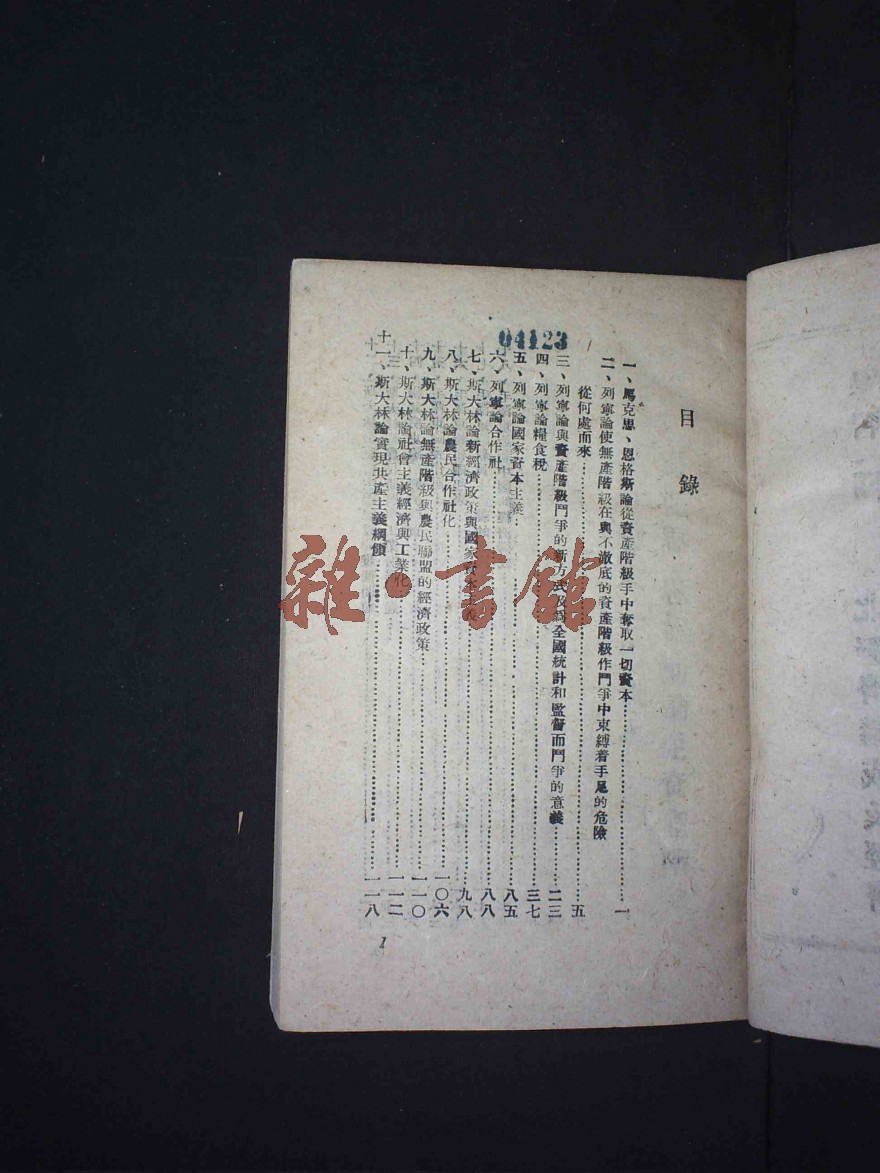 04123
目錄
一、馬克思、恩格斯論從資產階級手中奪取一切資本……一
二、列寧論使無產階級在與不澈底的資產階級作鬥爭中束縛着手足的危險
從何處而來……五
三、列寧論與資產階級鬥爭的新方式及為全國統計和監督而鬥爭的意義……二三
四、列寧論糧食稅……三七
五、列寧論國家資本主義……八五
六、列寧論合作社……八八
七、斯大林論新經濟政策與國家資本……九八
八、斯大林論農民合作社化……一〇六
九、斯大林論無產階級與農民聯盟的經濟政策……一一〇
十、斯大林論社會主義經濟與工業化……一一二
十一、斯大林論實現共產主義綱領……一一八
1
雜·書館